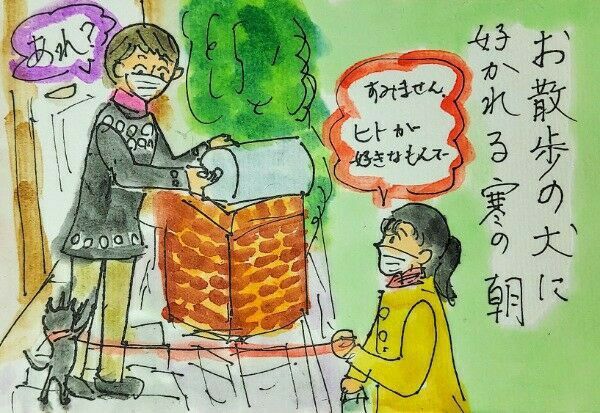 お散歩の犬に
好かれる寒の朝
あれ?
すみません、
ヒトが
好きなもんでー